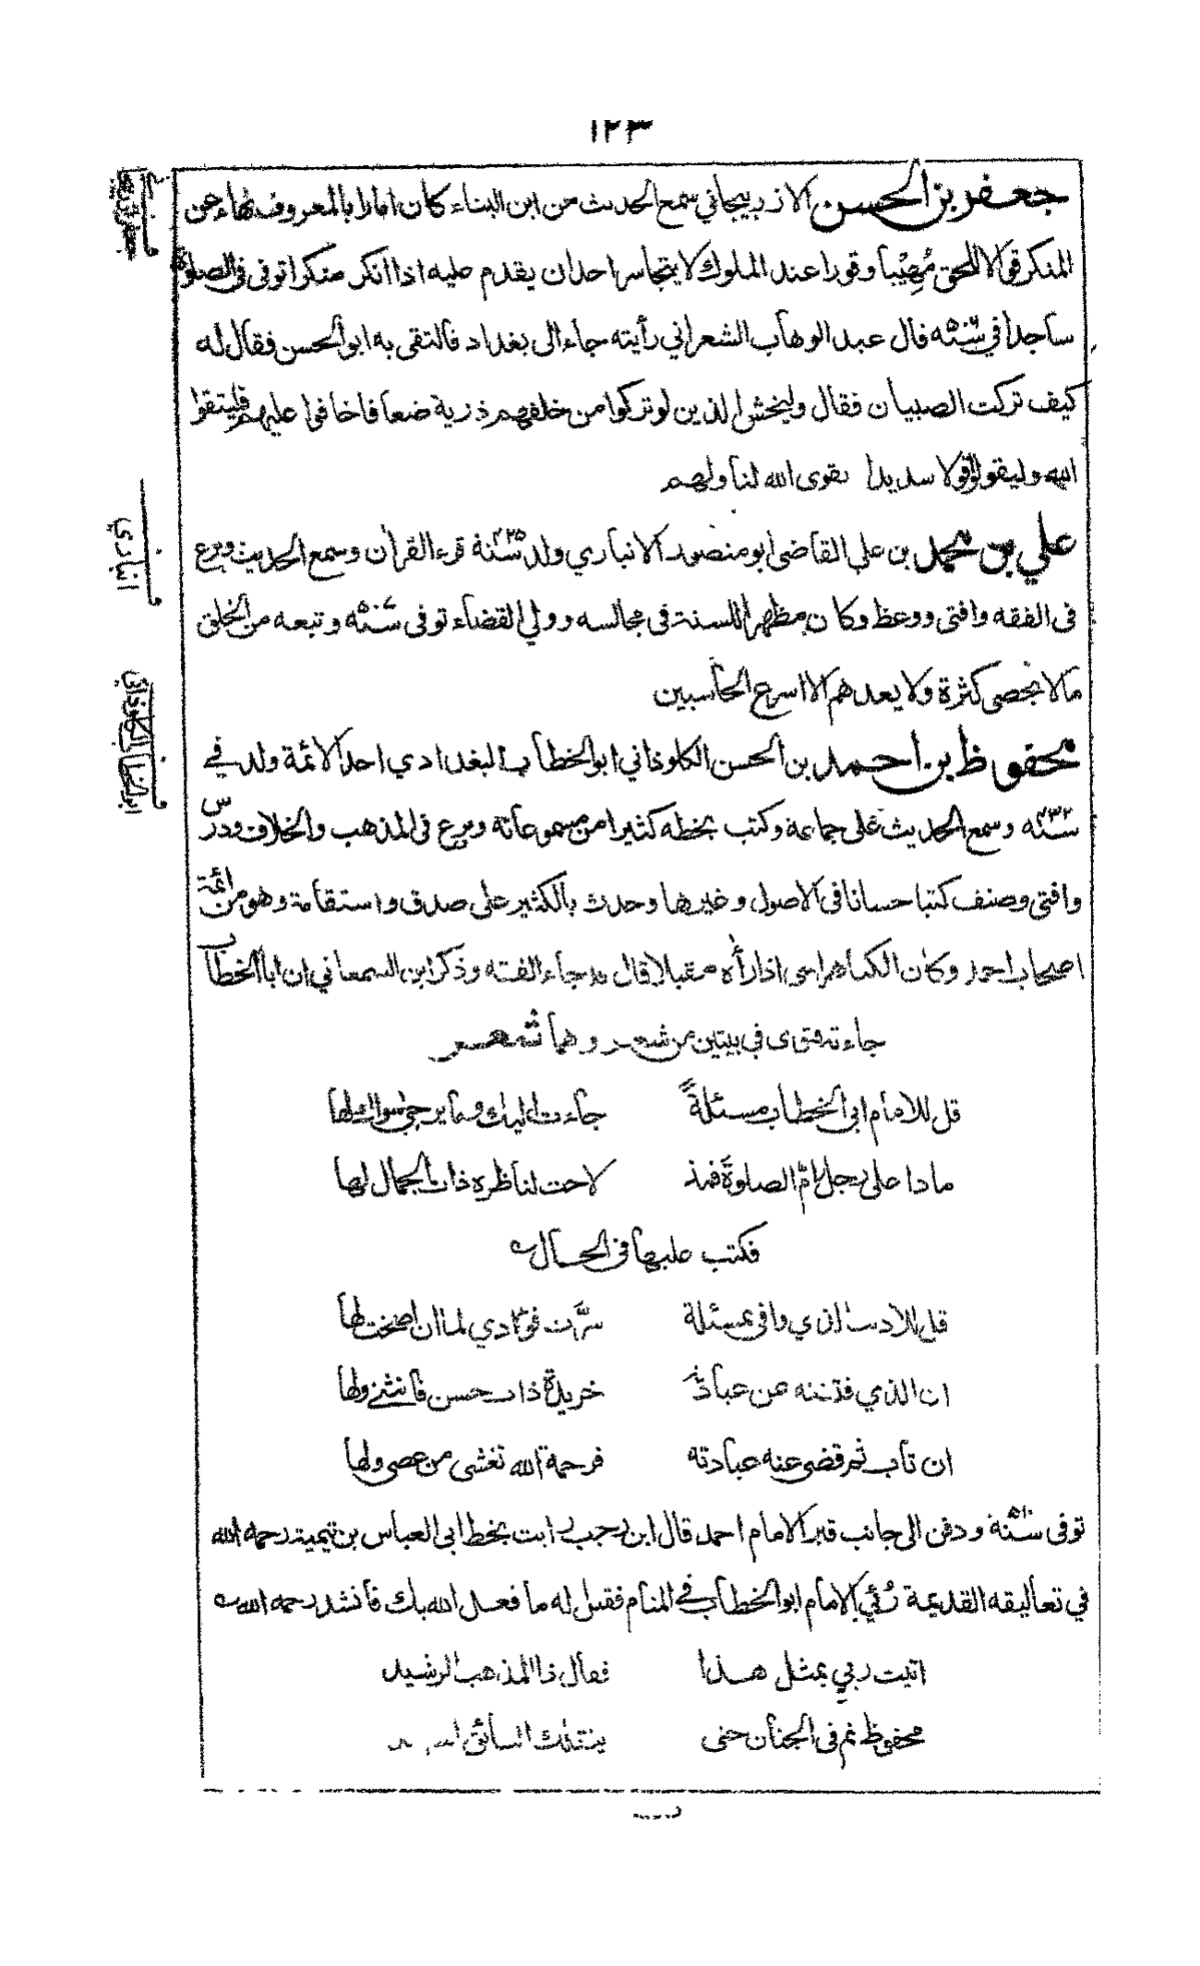 ١٢٣
جعفر بن الحسن الازربيجاني سمع الحديث من ابن البناء كان امارا بالمعروف نهاء عن
المنكر قوالا للحق مُهِيْباً وقورا عند الملوك لا يتجاسر احد ان يقدم عليه اذا انكر منكرا توفى فى الصلوة
ساجدا في سنه قال عبد الوهاب الشعراني رأيته جاء الى بغداد فالتقى به ابو الحسن فقال له
كيف تركت الصبيان فقال وليخش الذين لو تركوا من خلفهم ذرية ضعافا خافوا عليهم فليتقوا
الله وليقولوا قولا سديدا تقوى الله لنا ولهم
علي بن محمد بن علي القاضى ابو منصور الانباري ولد سنة قرء القران وسمع الحديث وبرع
فى الفقه وافتى ووعظ وكان مظهرا للسنة فى مجالسه وولي القضاء توفى سنه وتبعه من الخلق
مالا يحصى كثرة ولا يعدهم الا اسرع الحاسبين
محفوظ بن احمد بن الحسن الكلوذاني ابو الخطاب البغدادي احد الائمة ولد في
سنه ٤٣٢ وسمع الحديث على جماعة وكتب بخطه كثيرا من مسموعاته وبرع فى المذهب والخلاف ودرّس
وافتى وصنف كتبا حسانا فى الاصول وغيرها وحدث بالكثير على صدق واستقامة وهو من ائمة
اصحاب احمد وكان الكيا هراسى اذا رأه مقبلا قال قد جاء الفقه وذكر ابن السمعاني ان ابا الخطاب
جاءته فتوى في بيتين من شعر وهما شعر
قل للامام ابي الخطاب مسئلةً جاءت اليك وما يرجى سواك لها
ماذا على رجل رام الصلوة فمذ لاحت لناظره ذات الجمال لها
فكتب عليها فى الحال
قل للاديب الذي وافى بمسئلة سرَّت فؤادي لما ان اصخت لها
ان الذي فتنته عن عبادته خريدة ذات حسن فانثنى ولها
ان تاب ثم قضى عنه عبادته فرحمة الله تغشى من عصى ولها
توفى سنة ٥١٠ ودفن الى جانب قبر الامام احمد قال ابن رجب رايت بخط ابي العباس بن تيمية رحمه الله
في تعاليقه القديمة رُئي الامام ابو الخطاب في المنام فقيل له ما فعل الله بك فانشد رحمه الله
اتيت ربي بمثل هذا فقال ذا المذهب الرشيد
محفوظ نم فى الجنان حتى ينقلك السائق
انباري
ابو الخطاب الكلوذاني